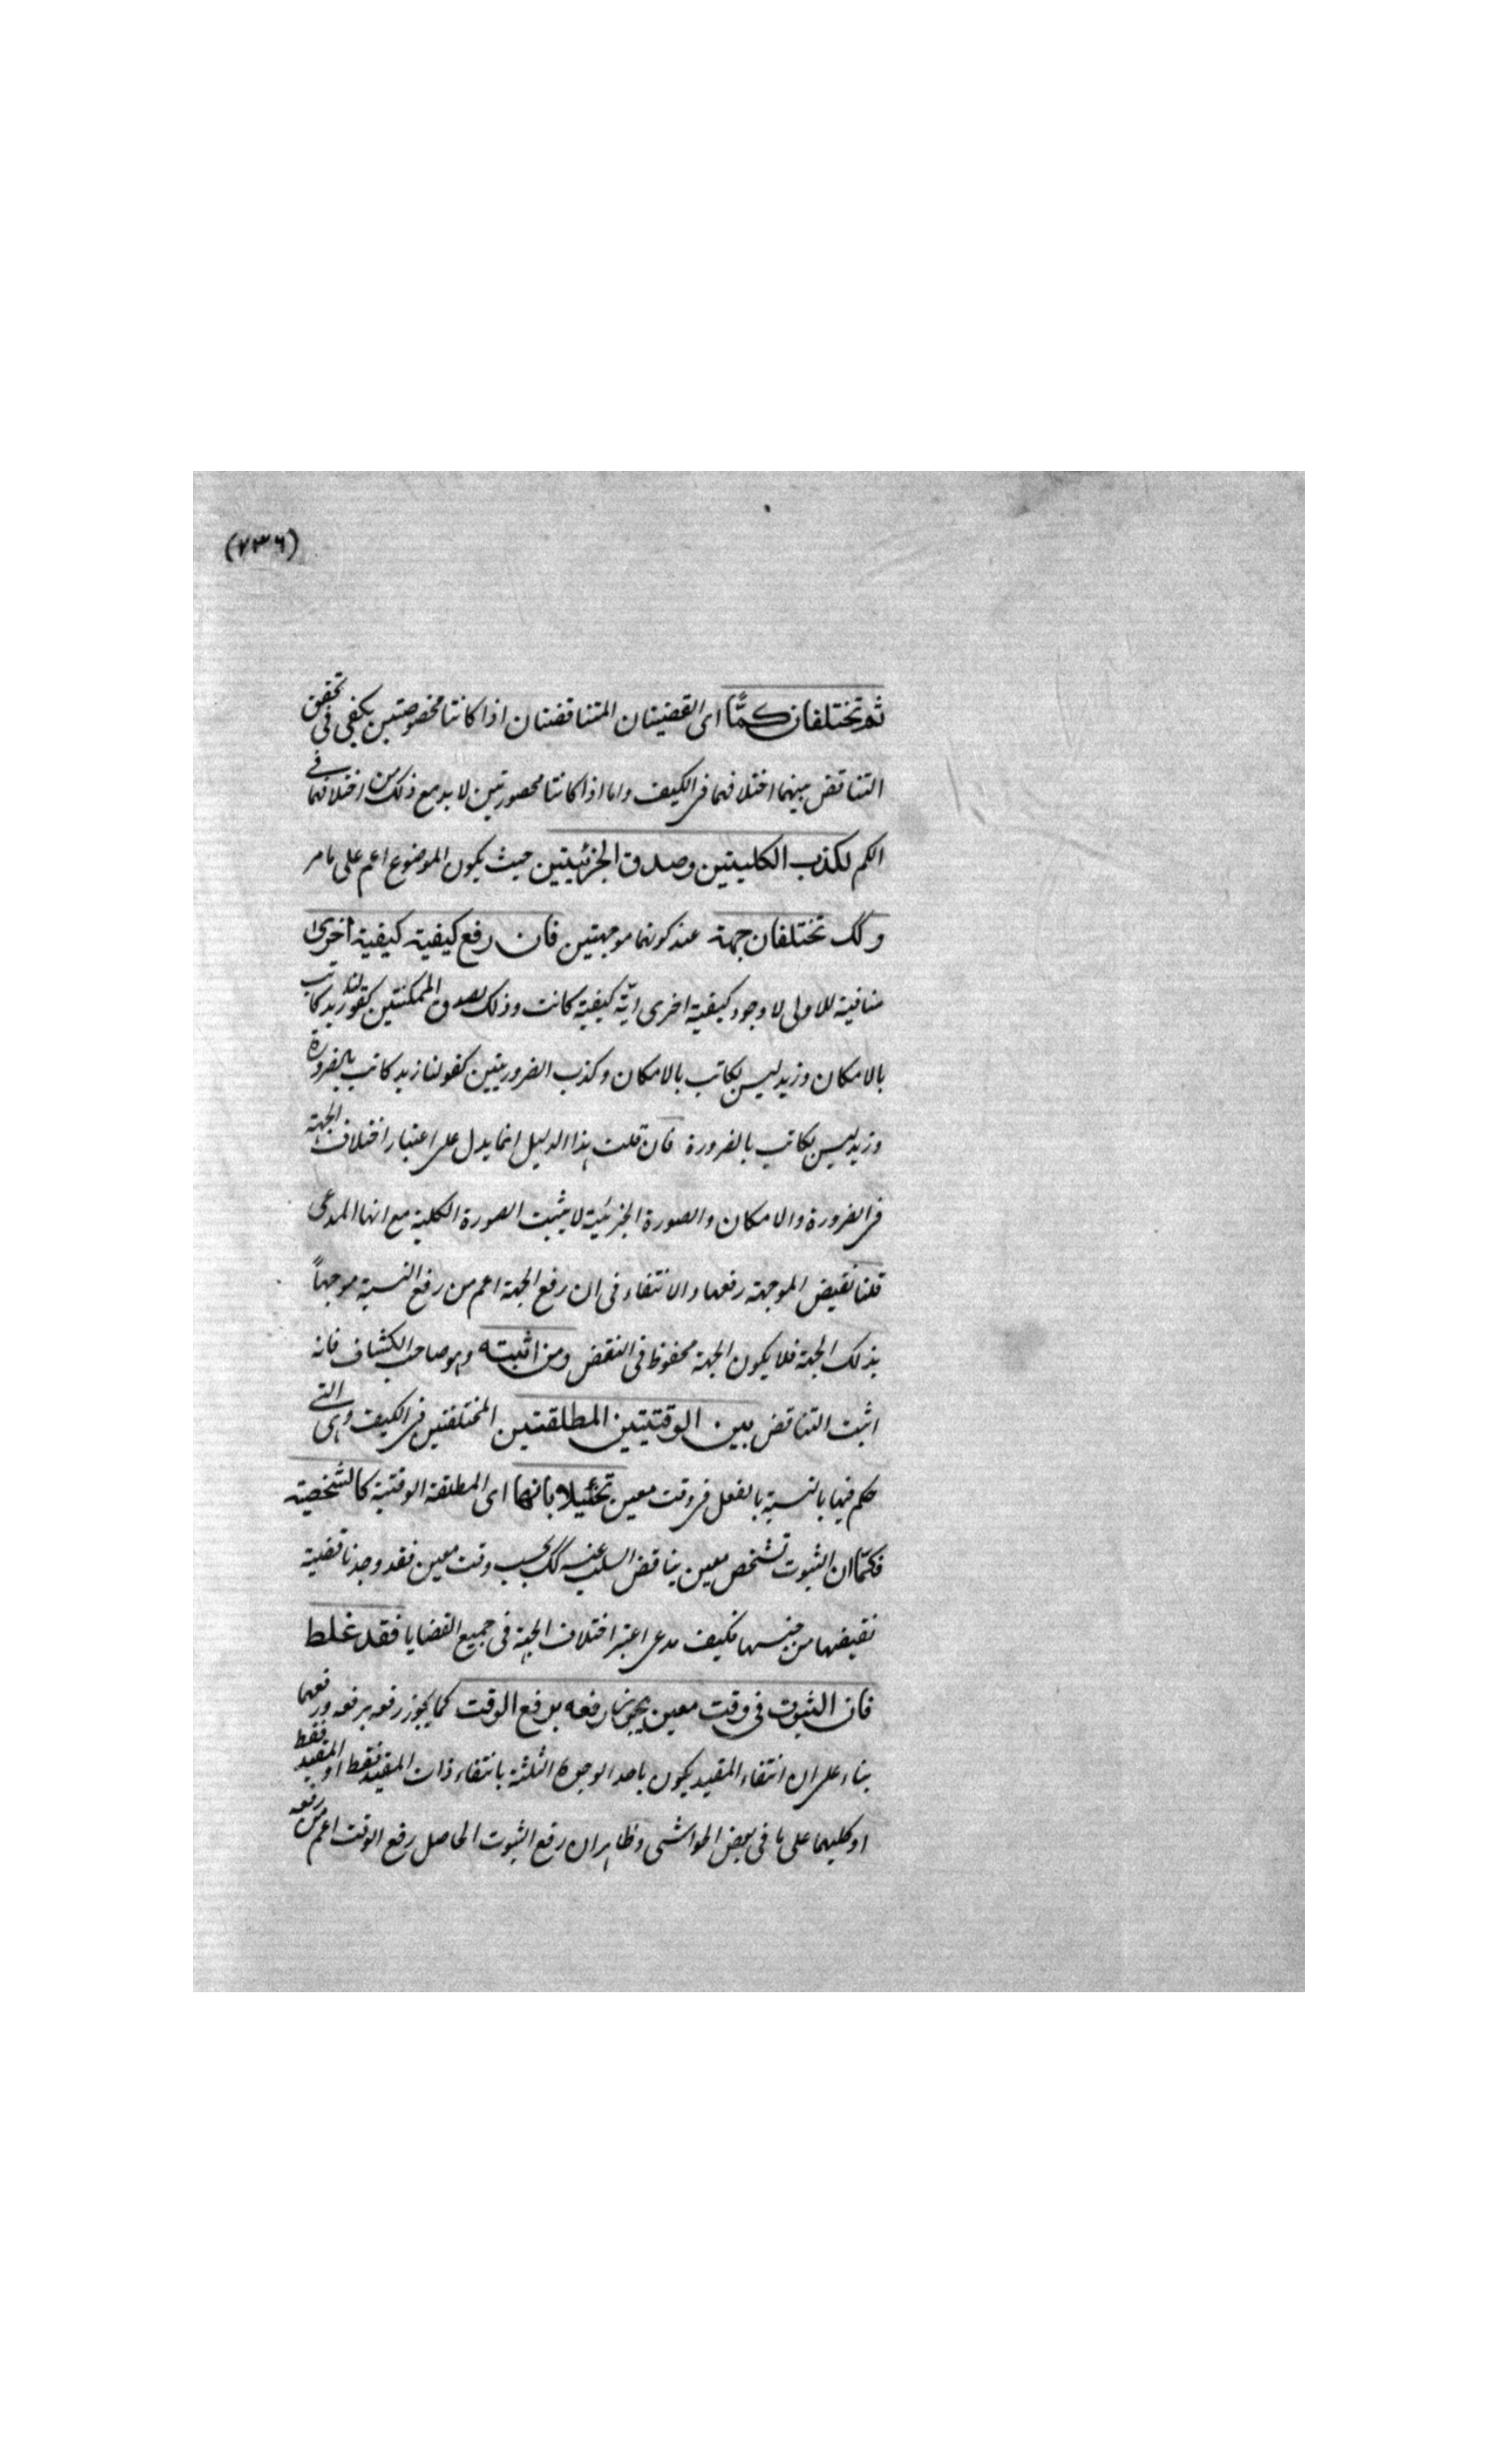 (٧٣٦)
ثم تختلفان كمًّا اى القضيتان المتناقضتان اذا كانتا مخصوصتين يكفى فى تحقق
التناقض بينهما اختلافهما فى الكيف واما اذا كانتا محصورتين لا بد مع ذلك من اختلافهما فى
الكم لكذب الكليتين وصدق الجزئيتين حيث يكون الموضوع اعم على ما مر
وكك تختلفان جهة عند كونهما موجهتين فان رفع كيفية كيفية اخرى
منافية للاولى لا وجود كيفية اخرى ايّة كيفية كانت وذلك لصدق الممكنتين كقولنا زيد كاتب
بالامكان وزيد ليس بكاتب بالامكان وكذب الضروريتين كقولنا زيد كاتب بالضرورة
وزيد ليس بكاتب بالضرورة فان قلت هذا الدليل انما يدل على اعتبار اختلاف الجهة
فى الضرورة والامكان والصورة الجزئية لا يثبت الصورة الكلية مع انها المدعى
قلنا نقيض الموجهة رفعها والانتفاء فى ان رفع الجهة اعم من رفع النسبة موجهاً
بذلك الجهة فلا يكون الجهة محفوظ فى النقض ومن اثبته وهو صاحب الكشاف فانه
اثبت التناقض بين الوقتيتين المطلقتين المختلفتين فى الكيف وهى التى
حكم فيها بالنسبة بالفعل فى وقت معين تخئيلا بانها اى المطلقة الوقتية كالشخصية
فكما ان الثبوت لشخص معين يناقض السلب عنه كك بحسب وقت معين فقد وجدنا قضية
نقيضها من جنسها فكيف مدعى اعتبر اختلاف الجهة فى جميع القضايا فقد غلط
فان الثبوت فى وقت معين يجوز رفعه برفع الوقت كما يجوز رفعه برفعه ورفعهما
بناء على ان انتفاء المقيد يكون باحد الوجوه الثلثة بانتفاء ذات المقيد فقط او القيد فقط
او كليهما على ما فى بعض الحواشى وظاهر ان رفع الثبوت الحاصل رفع الوقت اعم من رفعه